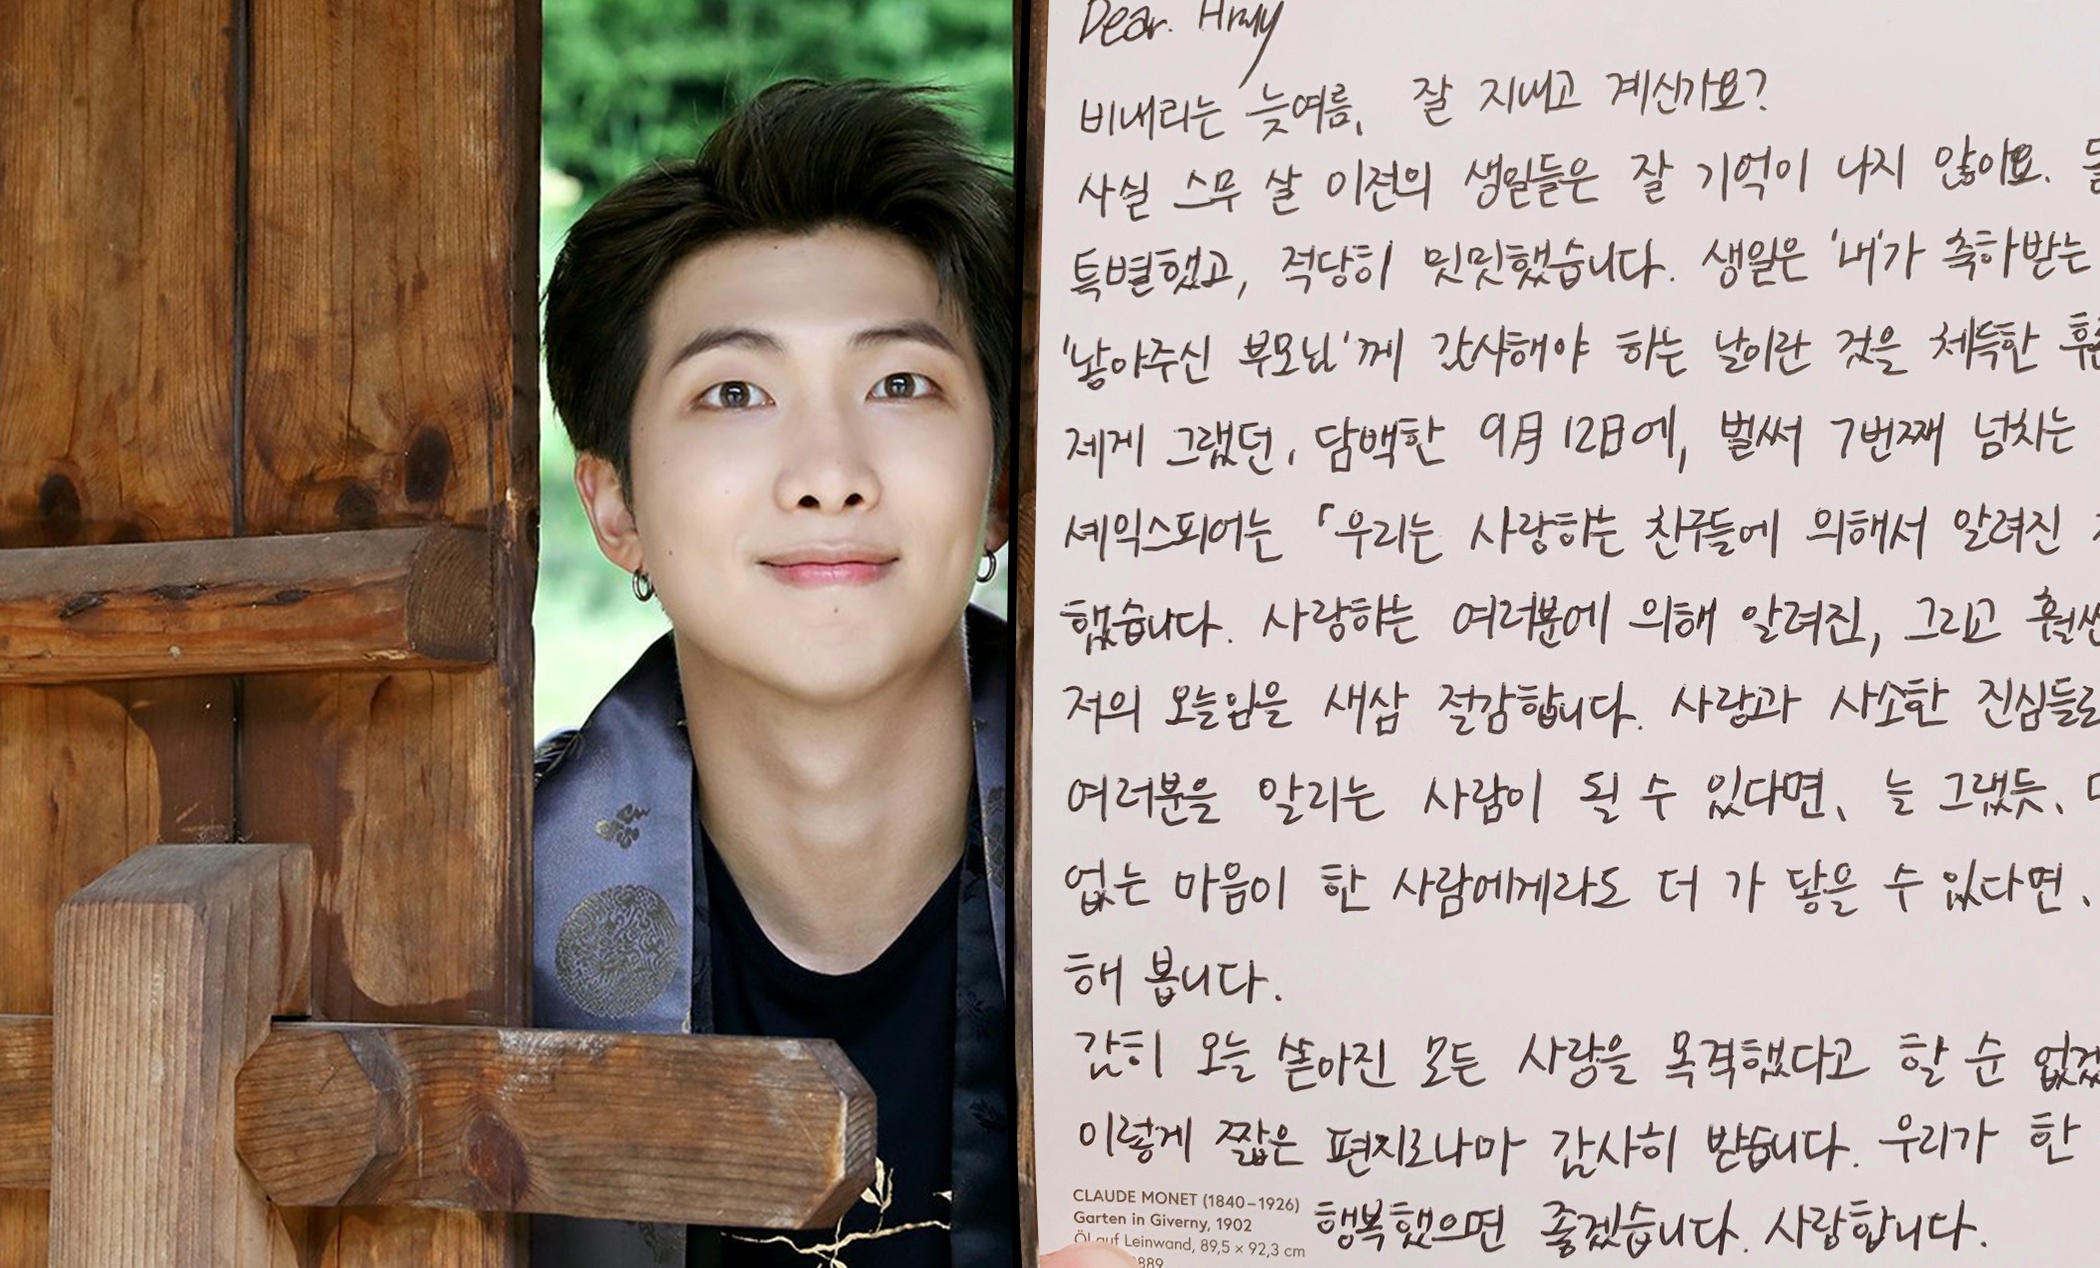 Dear. Army
비내리는 늦여름, 잘 지내고 계신가요?
사실 스무 살 이전의 생일들은 잘 기억이 나지 않아요.
특별했고, 적당히 밋밋했습니다. 생일은 '내'가 축하받는
'낳아주신 부모님'께 감사해야 하는 날이란 것을 체득한
제게 그랬던, 담백한 9月 12日에, 벌써 7번째 넘치는
셰익스피어는 「우리는 사랑하는 친구들에 의해서 알려진
했습니다. 사랑하는 여러분에 의해 알려진, 그리고 훨씬
저의 오늘임을 새삼 절감합니다. 사랑과 사소한 진심들로
여러분을 알리는 사람이 될 수 있다면, 늘 그랬듯,
없는 마음이 한 사람에게라도 더 가 닿을 수 있다면,
해 봅니다.
감히 오늘 쏟아진 모든 사랑을 목격했다고 할 순
이렇게 짧은 편지로나마 감사히 받습니다. 우리가 한
행복했으면 좋겠습니다. 사랑합니다.
CLAUDE MONET (1840–1926)
Garten in Giverny, 1902
Öl auf Leinwand, 89,5 × 92,3 cm
889